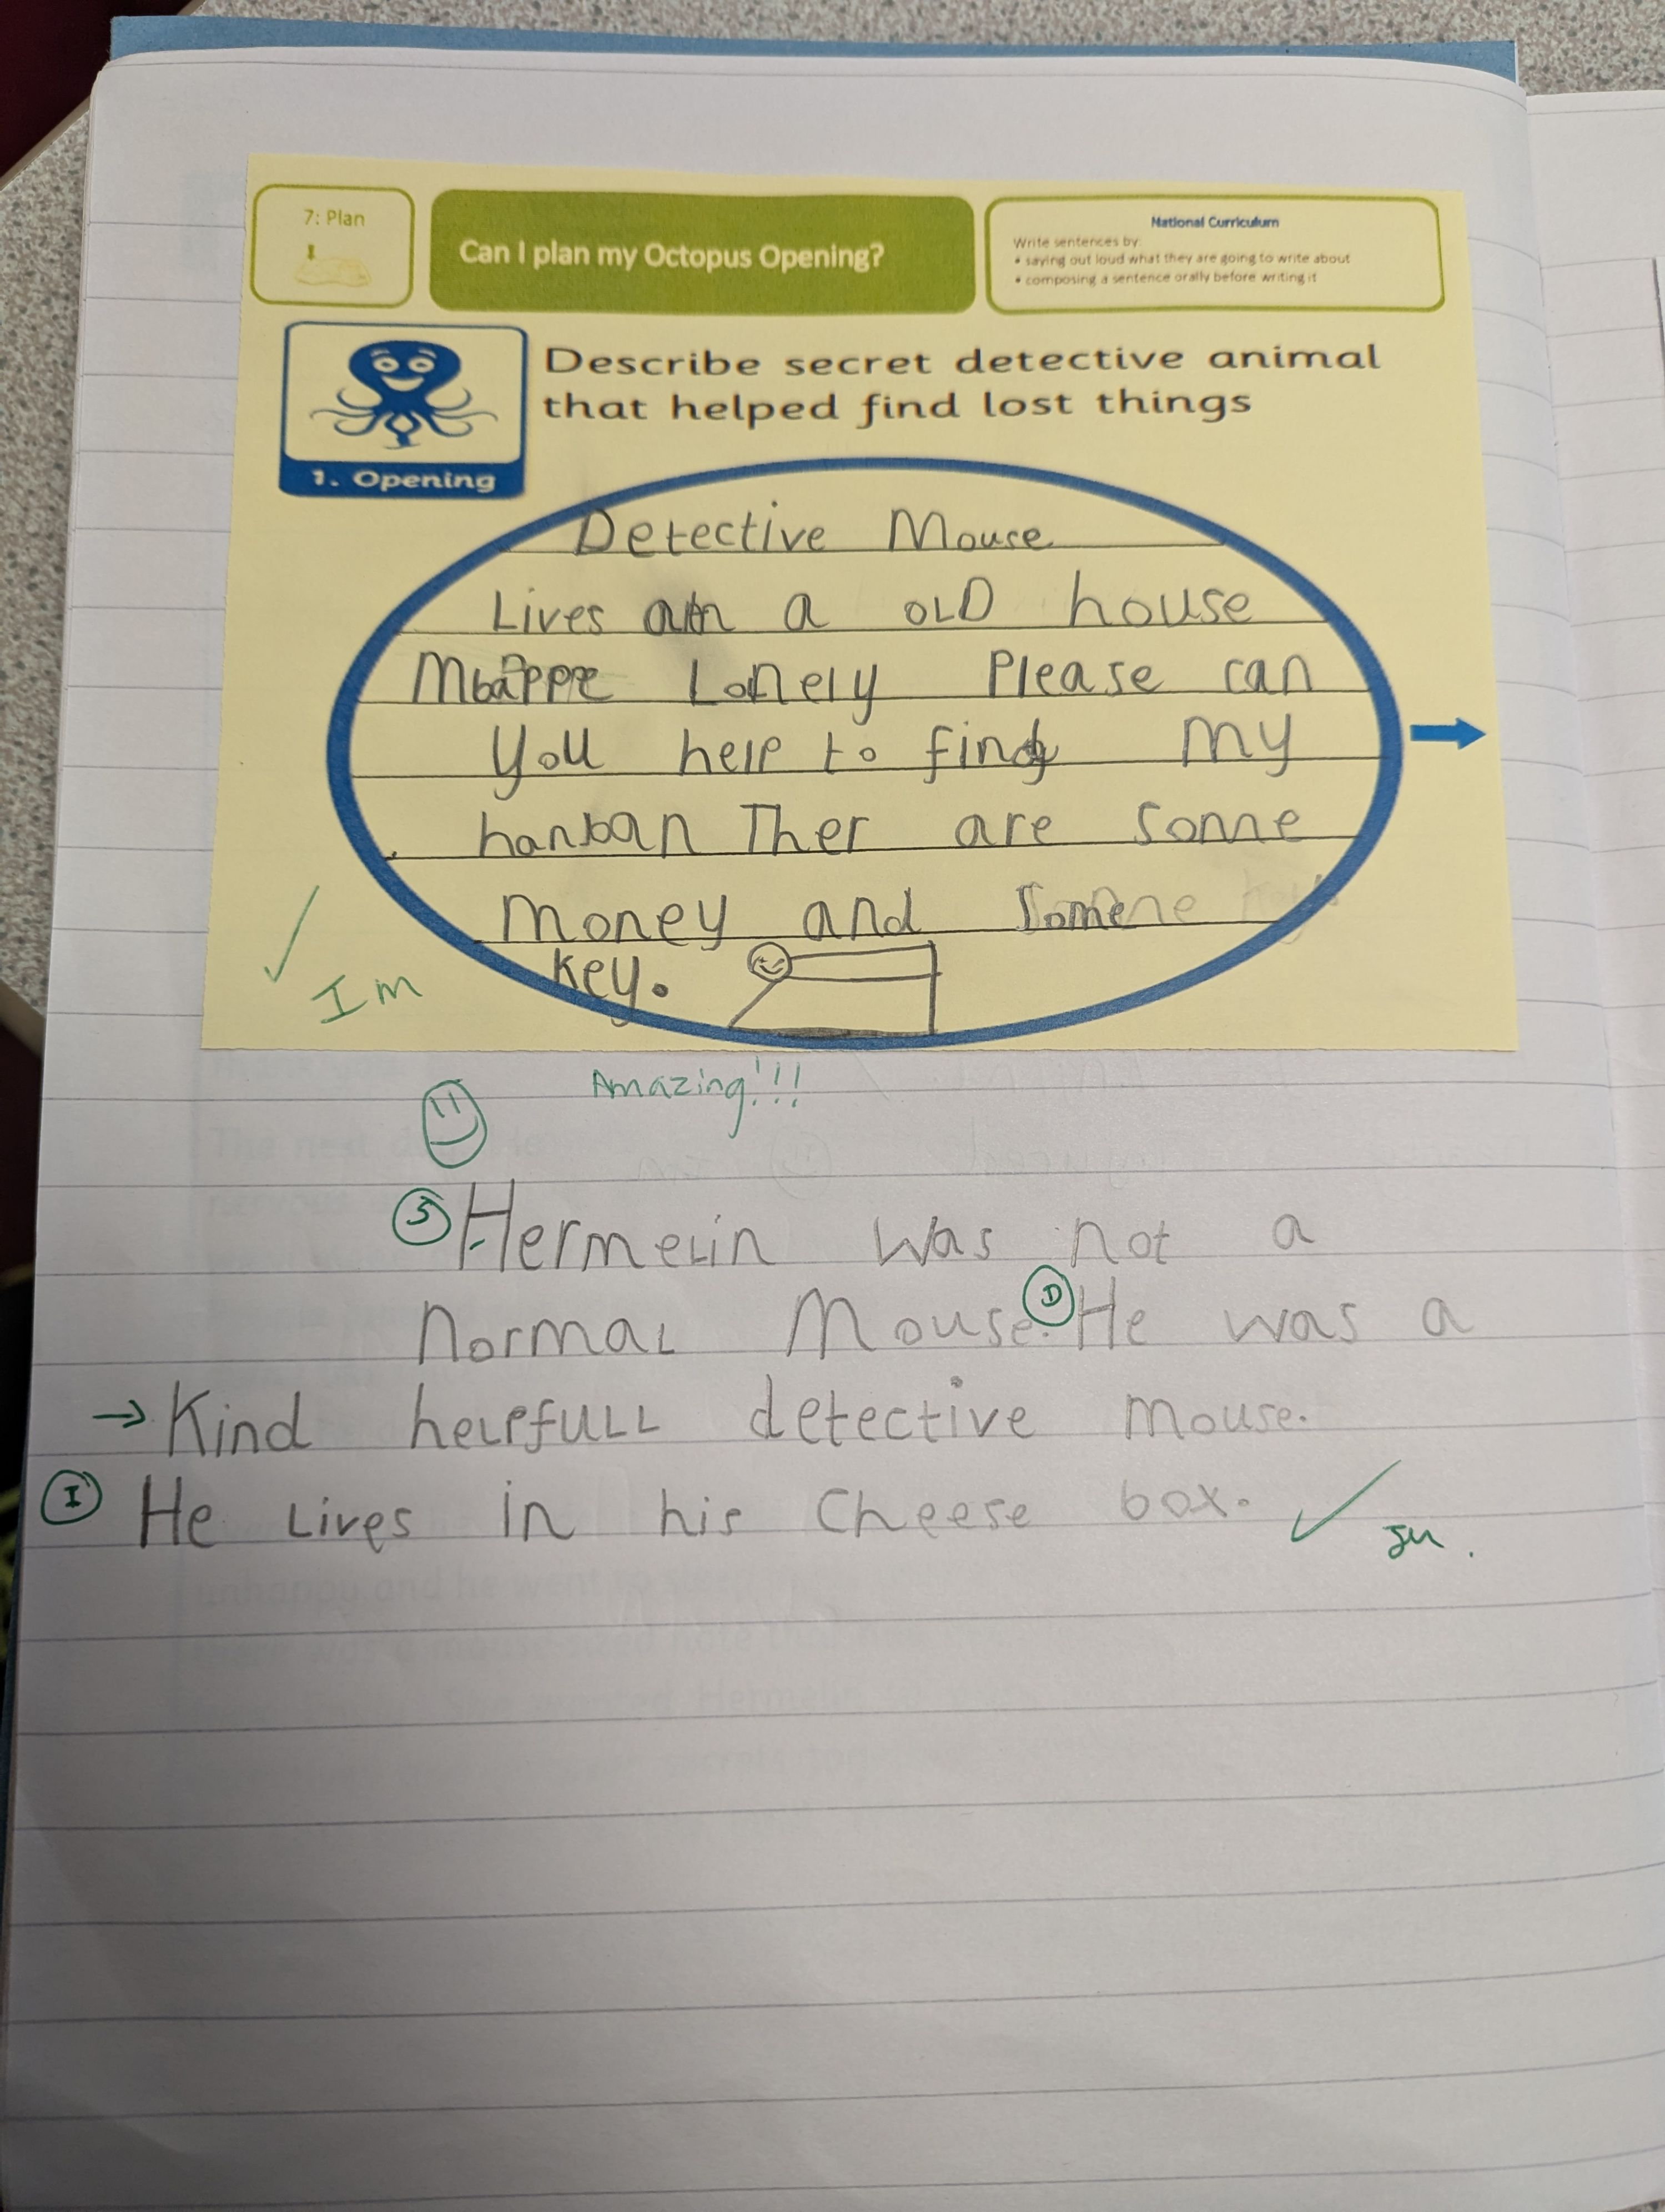 7: Plan
Can I plan my Octopus Opening?
National Curriculum
Write sentences by:
• saying out loud what they are going to write about
• composing a sentence orally before writing it
Describe secret detective animal
that helped find lost things
1. Opening
Detective Mouse
Lives a old house
Mbappe Lonely Please can
you help to find my
hanban Ther are sonne
money and Some
key.
Im
Amazing!!!
S Hermelin was not a
normal Mouse. D He was a
→ Kind helpfull detective mouse.
I He Lives in his Cheese box.